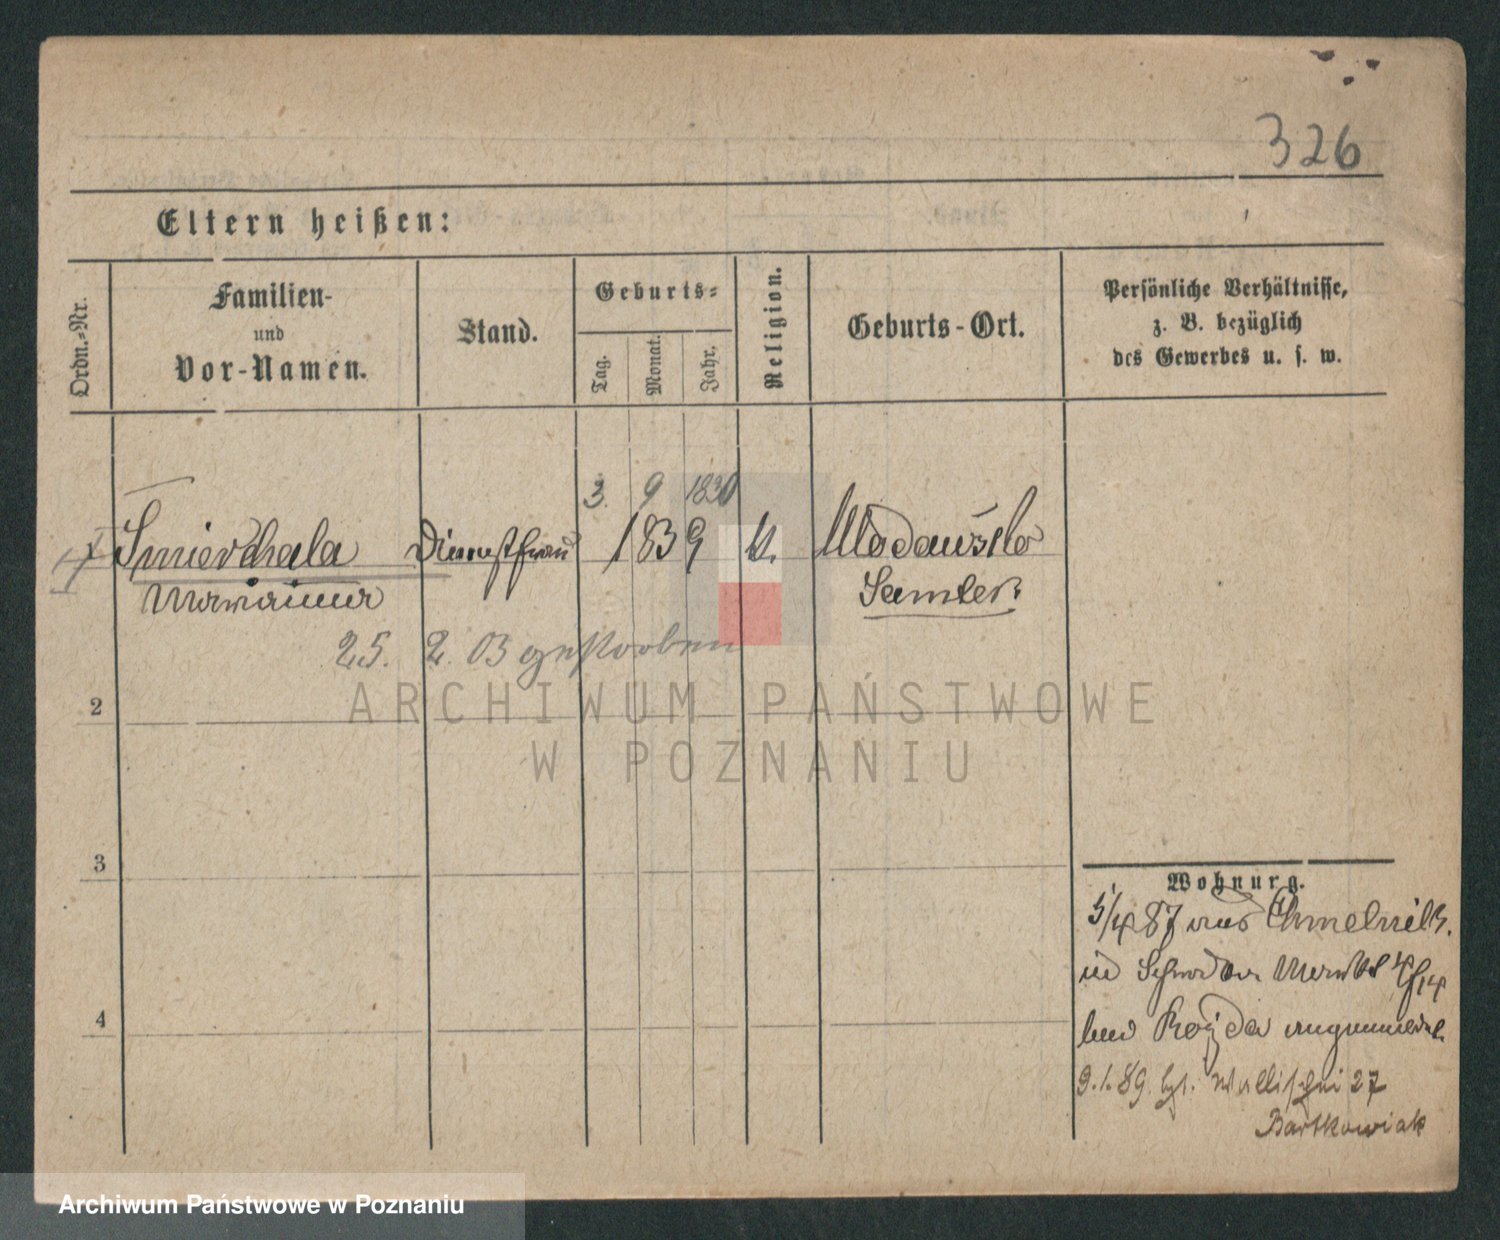 326
Eltern heißen:
Ordn.-Nr.
Familien-
und
Vor-Namen.
Stand.
Geburts-
Tag.
Monat.
Jahr.
Religion.
Geburts-Ort.
Persönliche Verhältnisse,
z. B. bezüglich
des Gewerbes u. s. w.
3. 9 1830
Dienstfrau 1839 k.
Marianna
Samter
25. 2. 03 gestorben
ARCHIWUM PAŃSTWOWE
W POZNANIU
2
3
4
Wohnung.
5/4 87 aus Chmelnik
in Schrodka Markt
bei angemeldet
9.1.89. Wallischei 27
Bartkowiak
Archiwum Państwowe w Poznaniu